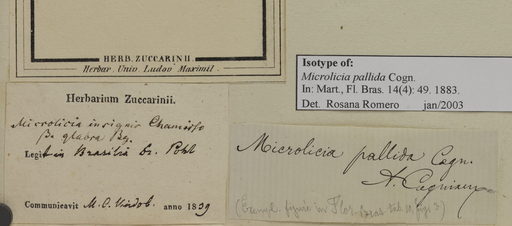 HERB. ZUCCARINII.
Herbar. Univ. Ludov. Maximil.
Isotype of:
Microlicia pallida Cogn.
In: Mart., Fl. Bras. 14(4): 49. 1883.
Det. Rosana Romero jan/2003
Herbarium Zuccarinii.
Microlicia insignis Chamisso
β. glabra
Legit in Brasilia Dr. Pohl
Communicavit M. C. Vindob. anno 1839
Microlicia pallida Cogn.
A. Cogniaux
(Exempl. figuré in Flor. bras. tab. 10, fig. 3)